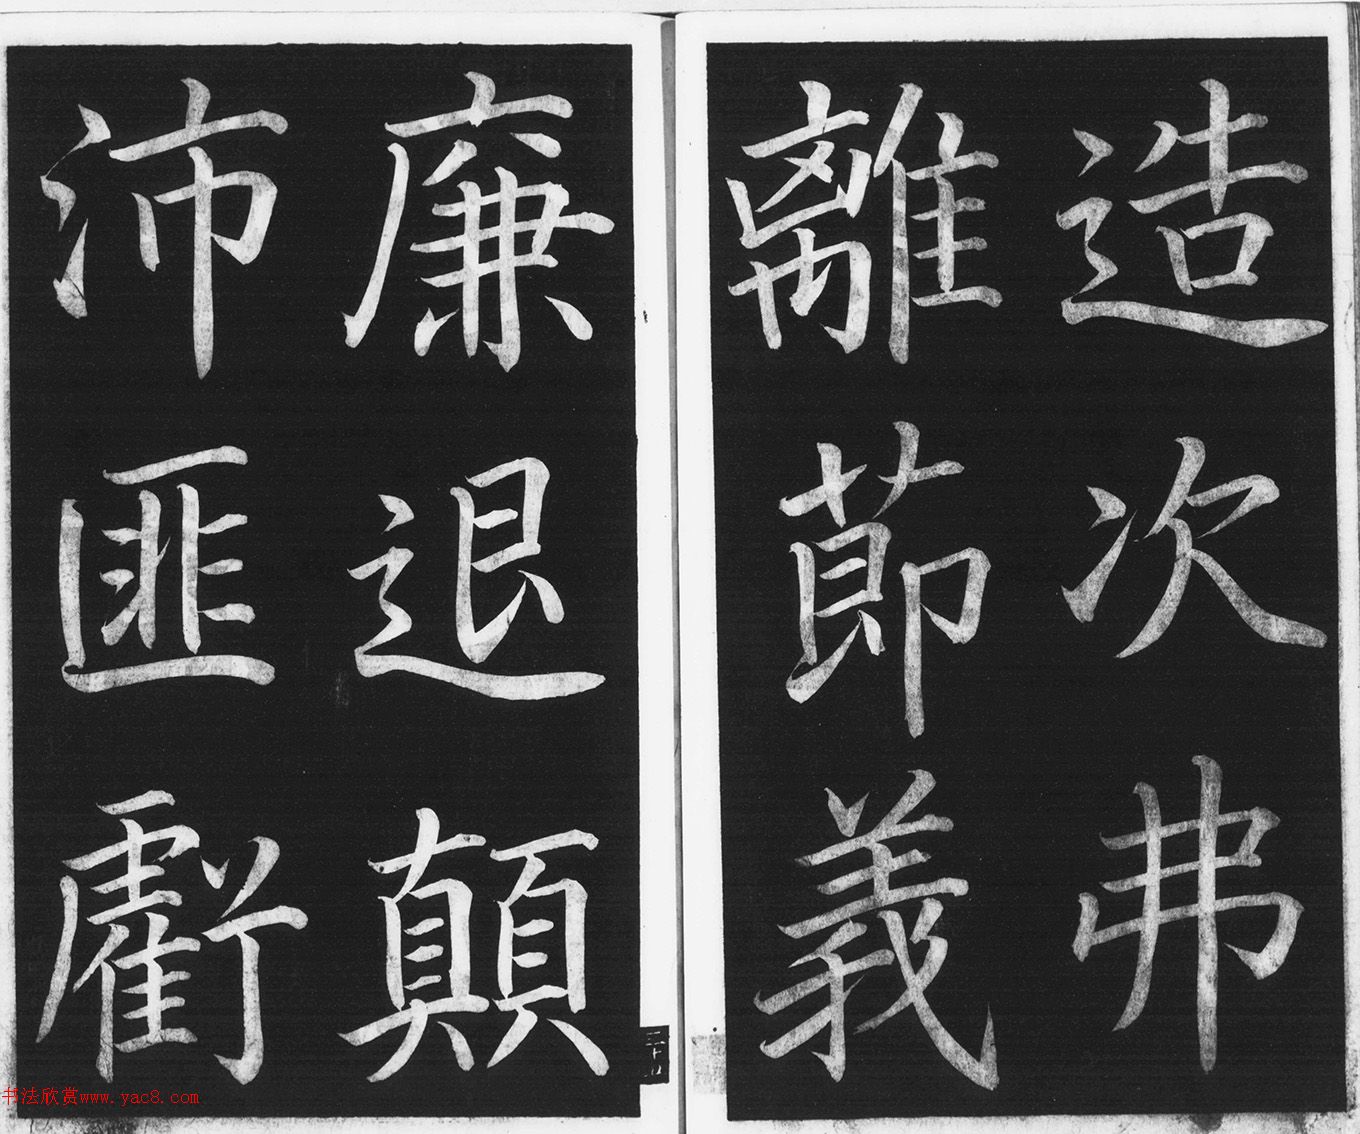 造次弗
離節義
廉退顛
沛匪虧
书法欣赏www.yac8.com